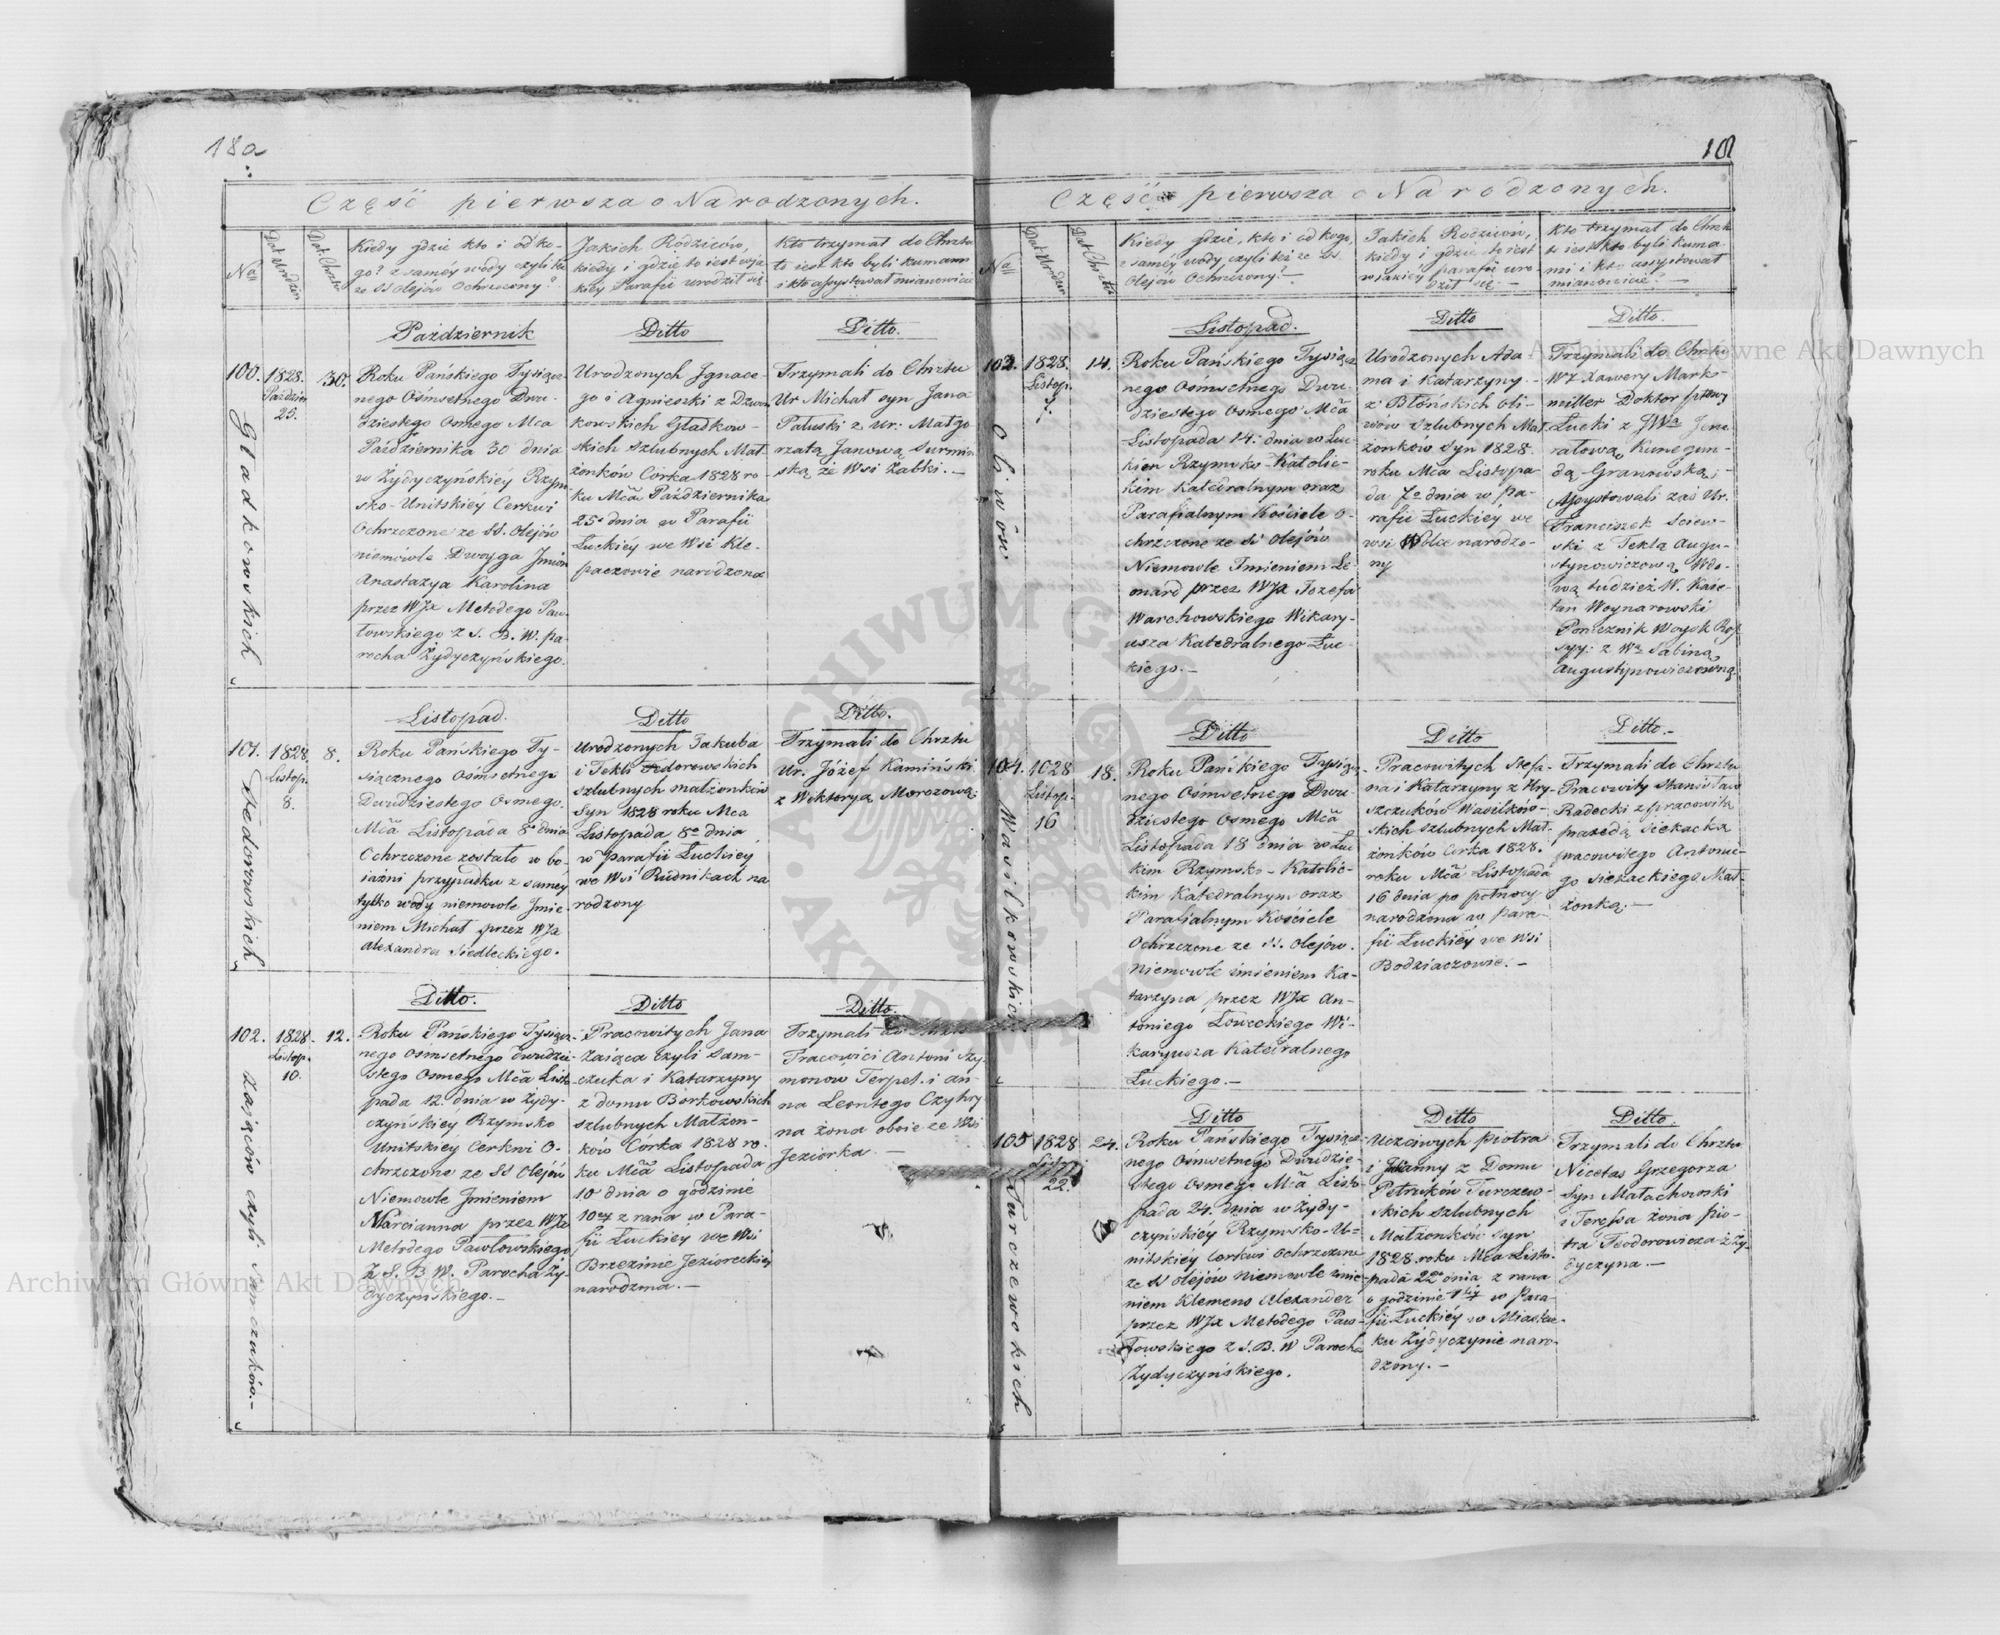 180
Część pierwsza o Narodzonych.
Nro
Dat. Urodzin
Dat. Chrztu
Kiedy gdzie kto i od ko-
go? z saméy wody czyli też
ze SS Olejów Ochrzczony?
Jakich Rodziców,
kiedy i gdzie to iest w ja-
kiéy Parafii urodził się
Kto trzymał do Chrztu
to iest kto byli kumami
i kto assystował mianowicie
Październik
Ditto
Ditto.
100.
1828.
Paździer.
25.
30.
Gładkowskich
Roku Pańskiego Tysiącz-
nego Ośmsetnego Dwu-
dziestego Osmego Mca
Października 30 dnia
w Żydyczyńskiéy Rzym-
sko-Unitskiéy Cerkwi
Ochrzczone ze SS. Olejów
niemowle Dwoyga Jmion
Anastazya Karolina
przez WJX Metodego Paw-
łowskiego Z. S. B. W. pa-
rocha Żydyczyńskiego.
Urodzonych Jgnace-
go i Agnieszki z Dzwon-
kowskich Gładkow-
skich szlubnych Mał-
żonków Corka 1828 ro-
ku Mca Października
25o dnia w Parafii
Łuckiéy we Wsi Kle-
paczowie narodzona
Trzymali do Chrztu
Ur Michał syn Jana
Paluski z Ur: Małgo
rzatą Janową Surmin-
ską ze Wsi Żabki.—
Listopad.
Ditto
Ditto.
101.
1828.
Listop.
8.
8.
Fedorowskich
Roku Pańskiego Ty-
siącznego Ośmsetnego
Dwudziestego Osmego
Mca Listopada 8o dnia
Ochrzczone zostało w bo-
iaźni przypadku z saméy
tylko wody niemowle Jmie-
niem Michał przez WJX
Alexandra Siedleckiego.
Urodzonych Jakuba
i Tekli Fedorowskich
szlubnych małżonków
Syn 1828 roku Mca
Listopada 8o dnia
w parafii Łuckiéy
we Wsi Rudnikach na
rodzony
Trzymali do Chrztu
Ur. Józef Kamiński
z Wiktoryą Morozową;
Ditto.
Ditto
Ditto.
102.
1828.
Listop.
10.
12.
Zaiąców czyli Samczuków.—
Roku Pańskiego Tysiącz-
nego Ośmsetnego Dwudzie-
stego Osmego Mca Listo-
pada 12. dnia w Żydy-
czyńskiéy Rzymsko
Unitskiey Cerkwi O-
chrzczone ze SS Olejów
Niemowle Jmieniem
Marcianna przez WJX
Metodego Pawłowskiego
Z S. B. W. Parocha Ży-
dyczyńskiego.—
Pracowitych Jana
Zaiąca czyli Sam-
czuka i Katarzyny
z domu Borkowskich
szlubnych Małżon-
ków Córka 1828 ro-
ku Mca Listopada
10 dnia o godzinie
10ey z rana w Para-
fii Łuckiey we Wsi
Brzezinie Jezioreckiéy
narodzona.—
Trzymali do Chrztu
Pracowici Antoni Szy-
monów Terpeł. i An-
na Leontego Czyhry
na żona oboie ze Wsi
Jeziorka.—
Część pierwsza o Narodzonych.
Nro
Dat. Urodzin
Dat. Chrztu
Kiedy gdzie, kto i od kogo,
z saméy wody czyli też ze SS.
Olejów Ochrzczony?—
Jakich Rodziców,
kiedy i gdzie to iest
w jakiéy parafii uro-
dził się.—
Kto trzymał do Chrztu
to iest kto byli kuma-
mi i kto assystował
mianowicie?—
Listopad.
Ditto
Ditto.
103.
1828.
Listop.
7.
14.
Oliwów
Roku Pańskiego Tysiącz
nego Osmsetnego Dwu-
dziestego Osmego Mca
Listopada 14. dnia w Łuc-
kien Rzymsko-Katolic-
kim Katedralnym oraz
Parafialnym Kościele O-
chrzczone ze SS Olejów
Niemowle Jmieniem Le-
onard przez WJX Jozefa
Warchowskiego Wikary-
usza Katedralnego Łuc-
kiego.—
Urodzonych Ada
ma i Katarzyny
z Błońskich Oli-
wów szlubnych Mał
żonków Syn 1828
roku Mca Listopa-
da 7o dnia w pa-
rafii Łuckiéy we
wsi Wolce narodzo-
ny
Trzymali do Chrztu
WJ. Xawery Mark-
miller Doktor
Łucki z JWa Jene
rałową Kunegun-
dą Granowską;
Assystowali zaś Ur.
Franciszek Sciew-
ski z Teklą Augu-
stynowiczową Wdo-
wą tudzież W. Kaie-
tan Woynarowski
Porucznik Woysk Ros-
syy: z Wą Sabiną
Augustynowiczówną.
Ditto
Ditto
Ditto.—
104.
1828
Listop.
16
18.
Wasilkowskich
Roku Pańskiego Tysiącz-
nego Ośmsetnego Dwu
dziestego Osmego Mca
Listopada 18 dnia w Łuc
kim Rzymsko-Katolic-
kim Katedralnym oraz
Parafialnym Kościele
Ochrzczone ze SS. Olejów.
Niemowle imieniem Ka-
tarzyna przez WJX An-
toniego Łoweckiego Wi-
karyusza Katedralnego
Łuckiego.—
Pracowitych Stefa-
na i Katarzyny z Hry-
szczuków Wasilków-
skich szlubnych Mał-
żonków Corka 1828.
roku Mca Listopada
16 dnia po północy
narodzona w para-
fii Łuckiéy we Wsi
Bodziaczowie.—
Trzymali do Chrztu
Pracowity Stanisław
Radecki z pracowitą
Siekacką
pracowitego Antonie-
go Siekackiego Mał-
żonką.—
Ditto
Ditto
Ditto.
105
1828
Listop.
22.
24.
Turczewskich
Roku Pańskiego Tysiącz-
nego Ośmsetnego Dwudzie-
stego Osmego Mca Listo-
pada 24. dnia w Żydy-
czyńskiéy Rzymsko-U-
nitskiéy Cerkwi Ochrzczone
ze SS Olejów Niemowle imie-
niem Klemens Alexander
przez WJX Metodego Paw-
łowskiego Z. S. B. W Parocha
Żydyczyńskiego.
Uczciwych Piotra
i Julianny z Domu
Petruków Turczew-
skich szlubnych
Małżonków syn
1828 roku Mca Listo-
pada 22o dnia z rana
o godzinie w Para
fii Łuckiéy w Miastecz-
ku Żydyczynie naro-
dzony.—
Trzymali do Chrztu
Nicetas Grzegorza
Syn Małachowski
i Teressa żona Pio-
tra Teodorowicza z Ży-
dyczyna.—
Archiwum Główne Akt Dawnych
Archiwum Główne Akt Dawnych
ARCHIWUM GŁÓWNE AKT DAWNYCH